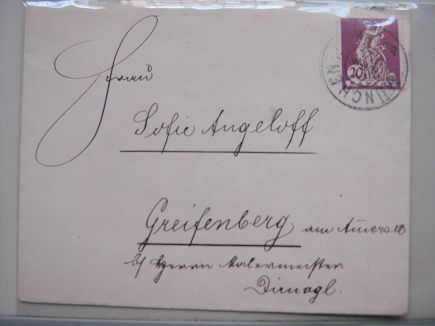 20
MÜNCHEN
Frau
Sofie Angeloff
Greifenberg am Ammersee
b/ Herrn Malermeister
Dirnagl.